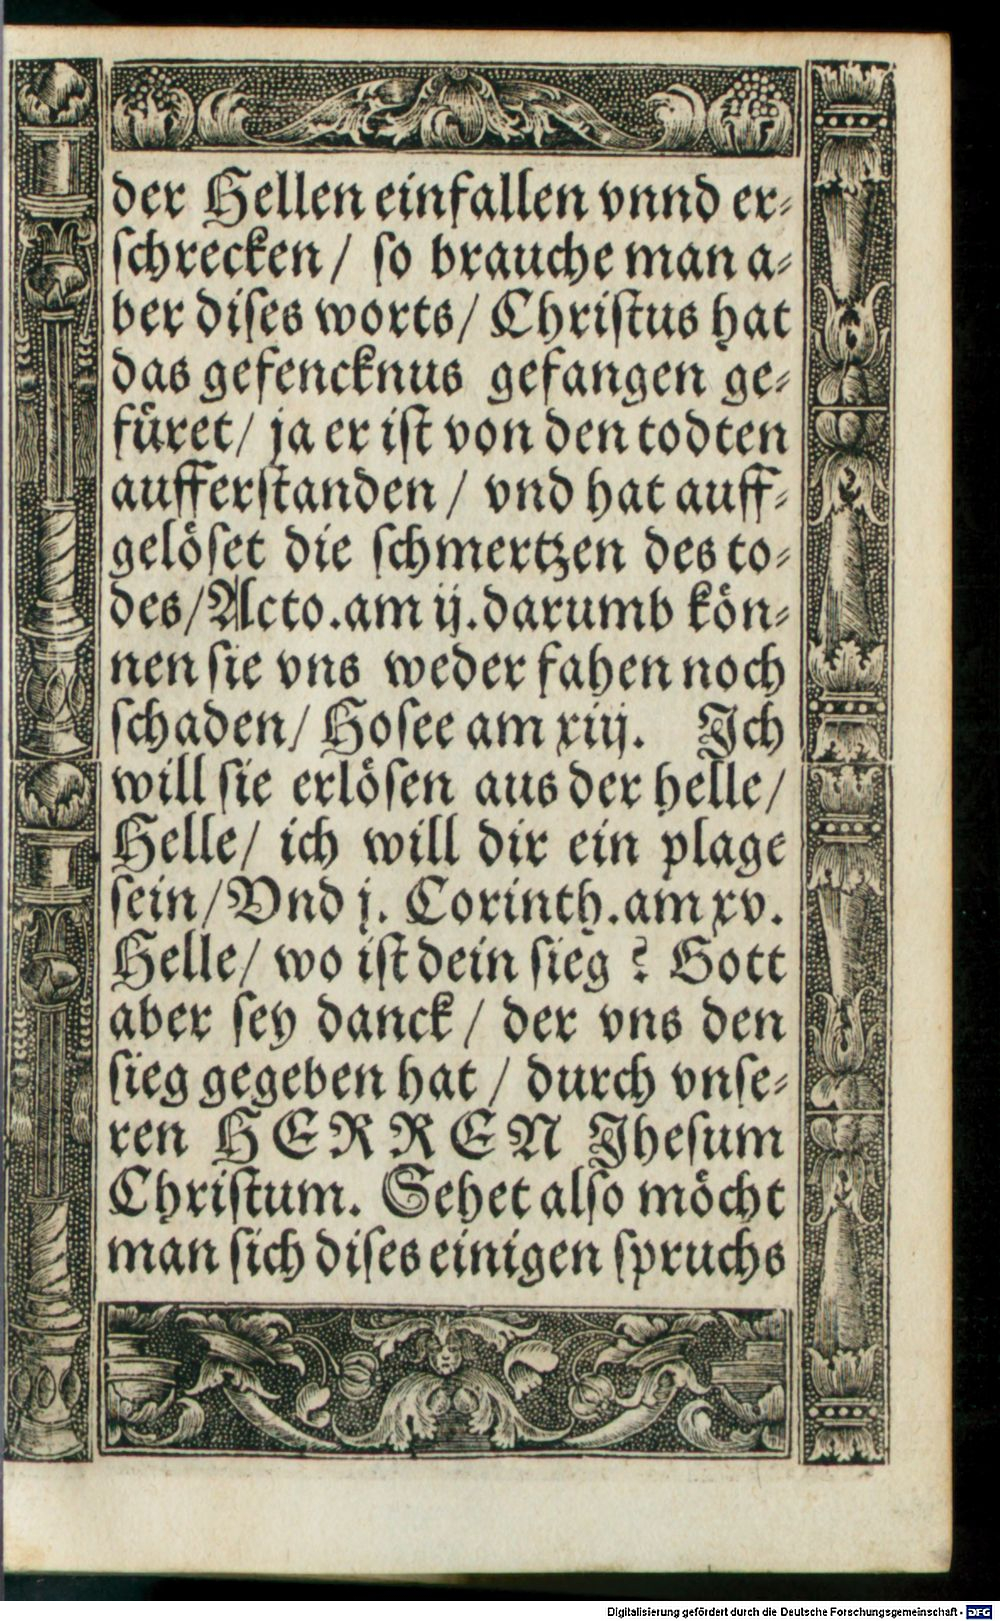 der Hellen einfallen vnnd er⸗
schrecken / so brauche man a⸗
ber dises worts / Christus hat
das gefencknus gefangen ge⸗
füret / ja er ist von den todten
aufferstanden / vnd hat auff⸗
gelöset die schmertzen des to⸗
des / Acto. am ij. darumb kön⸗
nen sie vns weder fahen noch
schaden / Hosee am xiij. Ich
will sie erlösen aus der helle /
Helle / ich will dir ein plage
sein / Vnd j. Corinth. am xv.
Helle / wo ist dein sieg ? Gott
aber sey danck / der vns den
sieg gegeben hat / durch vnse⸗
ren HERREN Jhesum
Christum. Sehet also möcht
man sich dises einigen spruchs
Digitalisierung gefördert durch die Deutsche Forschungsgemeinschaft - DFG